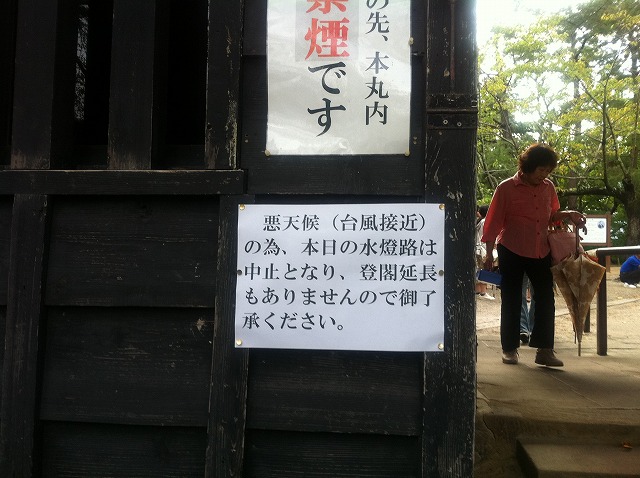 の先、本丸内
禁煙です
悪天候（台風接近）
の為、本日の水燈路は
中止となり、登閣延長
もありませんので御了
承ください。